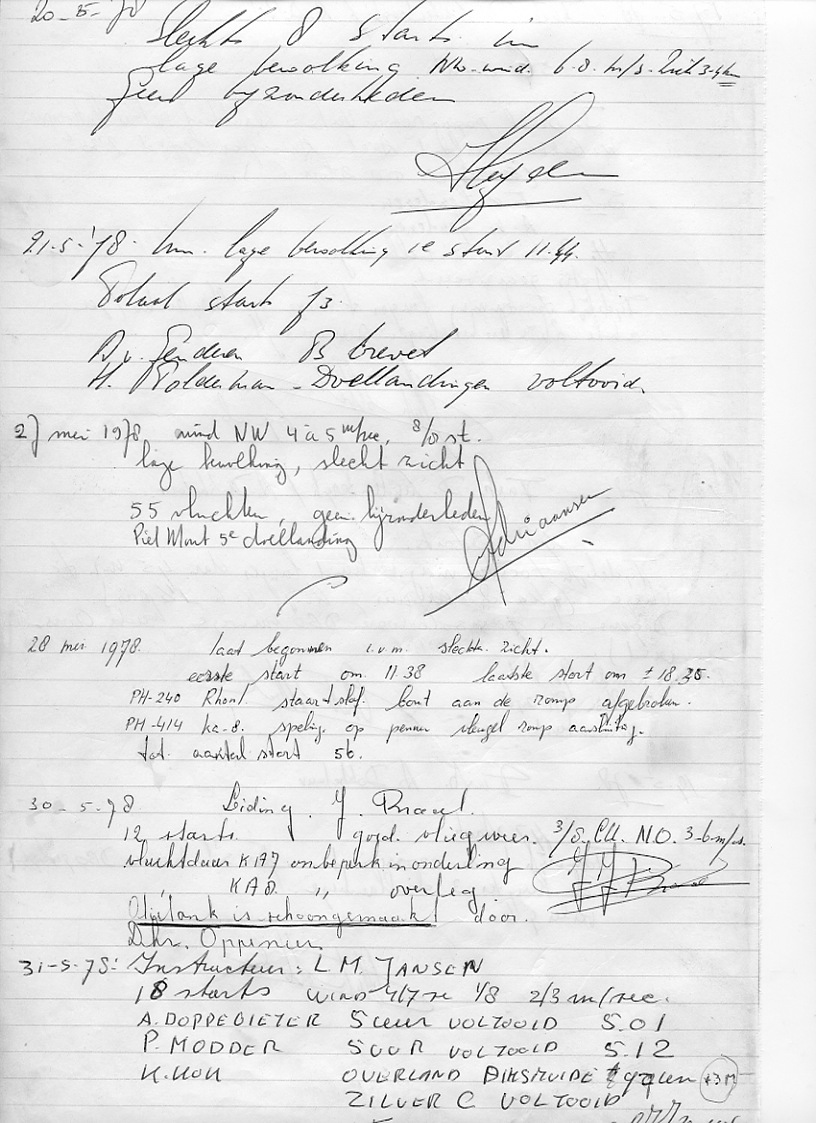 20-5-78 slechts 8 starts i.v.m.
lage bewolking NW-wind 6-8 m/s. Zicht 3-4 km
geen byzonderheden
21-5-'78. i.v.m. lage bewolking 1e start 11.44.
Totaal starts 73.
B brevet
H. Polderman - Doellandingen voltooid.
27 mei 1978 wind NW 4 à 5 m/sec, 8/8 st.
lage bewolking, slecht zicht
55 vluchten, geen bijzonderheden
Piet Mout 5e doellanding
Adriaansen
28 mei 1978. laat begonnen i.v.m. slecht zicht.
eerste start om 11.38 laatste start om ± 18.35.
PH-240 Rhonl staartslof bout aan de romp afgebroken.
PH-414 ka-8. speling op pennen vleugel romp aansluiting.
tot. aantal start 56.
30-5-78. Leiding J. Praal.
12 starts. goed vliegweer. 3/8 CU. N.O. 3-6 m/s.
vluchtduur KA7 onbeperkt in onderling
KA8. " overleg.
Olietank is schoongemaakt door.
Dhr. Oppeneer.
31-5-78: Instructeur: L.M. JANSEN
18 starts WIND 1/8 2/3 m/sec.
A. DOPPEGIETER 5 UUR VOLTOOID 5.01
P. MODDER 5 UUR VOLTOOID 5.12
K. KOK OVERLAND DIKSMUIDE
ZILVER C VOLTOOID